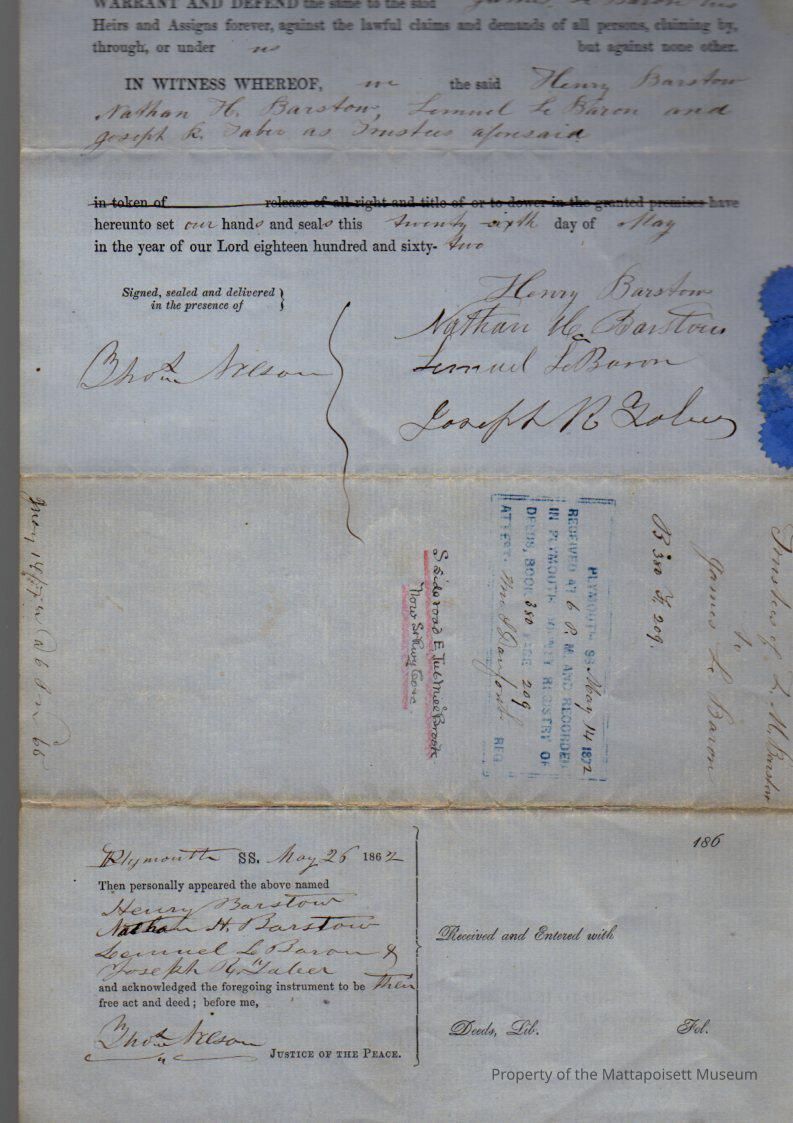 WARRANT AND DEFEND the same to the said James Le Baron his
Heirs and Assigns forever, against the lawful claims and demands of all persons, claiming by,
through, or under us but against none other.
IN WITNESS WHEREOF, we the said Henry Barstow
Nathan H. Barstow, Lemuel Le Baron and
Joseph R. Taber as Trustees aforesaid
in token of release of all right and title of or to dower in the granted premises have
hereunto set our hands and seals this twenty sixth day of May
in the year of our Lord eighteen hundred and sixty-two
Signed, sealed and delivered
in the presence of
Henry Barstow
Nathan H. Barstow
Lemuel LeBaron
Thos Nelson
Joseph R Taber
Trustees of L. M. Barstow
to
James Le Baron
B 380 F. 209.
PLYMOUTH SS. May 14 1872
RECEIVED AT 6 P. M. AND RECORDED
IN PLYMOUTH COUNTY REGISTRY OF
DEEDS, BOOK 380 PAGE 209
ATTEST. Wm S Danforth REG
S side road E Tub Mill Brook
Now
May 14
Plymouth SS. May 26 1862
Then personally appeared the above named
Henry Barstow
Nathan H. Barstow
Lemuel Le Baron &
Joseph R. Taber
and acknowledged the foregoing instrument to be their
free act and deed; before me,
Thos Nelson
JUSTICE OF THE PEACE.
186
Received and Entered with
Deeds, Lib. Fol.
Property of the Mattapoisett Museum